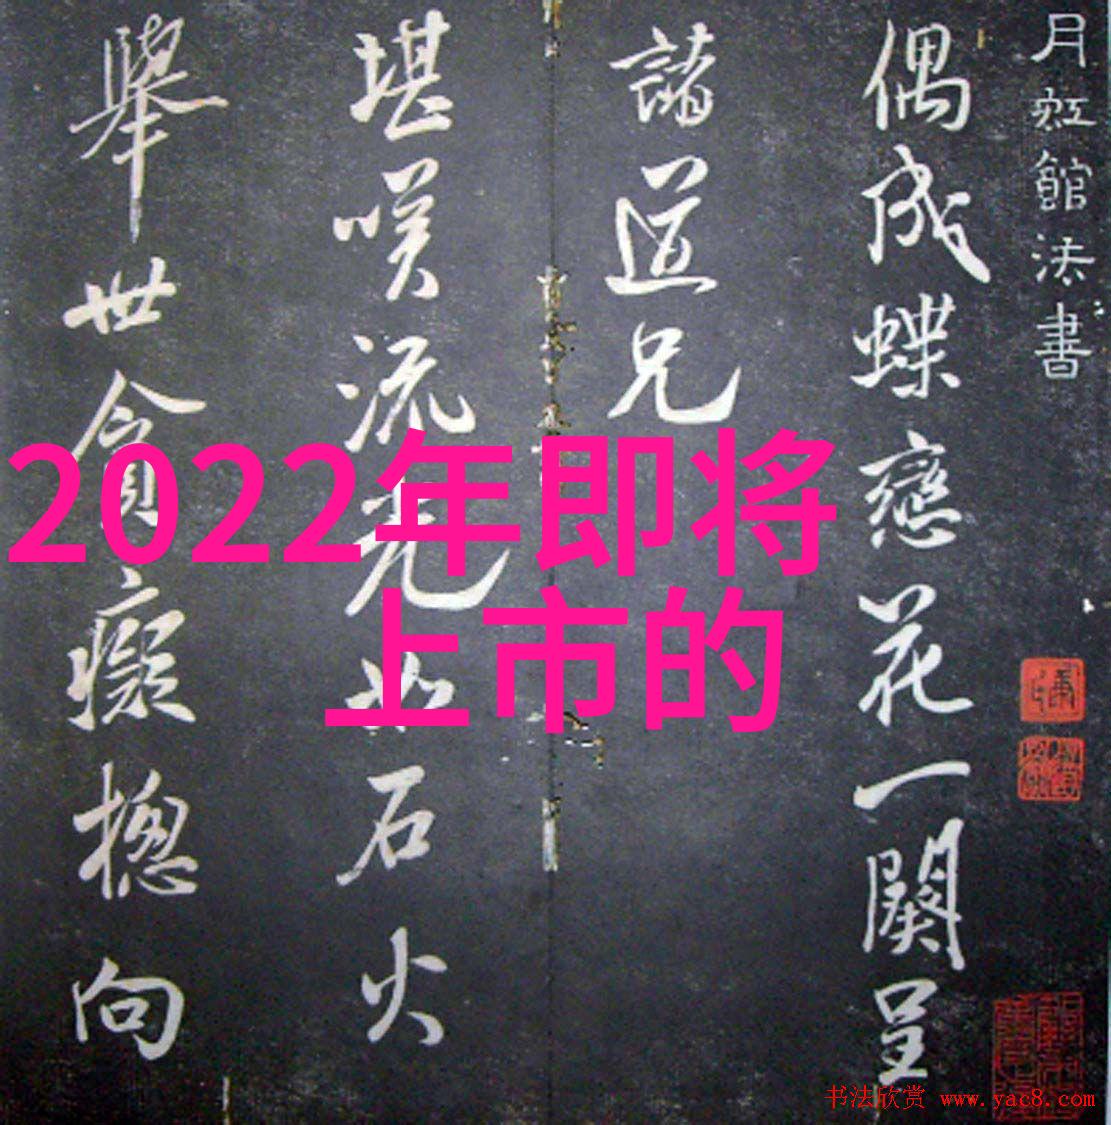 月虹館法書
偶成蝶戀花一闋呈
諸道兄
堪嘆流光如石火
舉世貪癡揔向
2022年即将
上市的
书法欣赏 www.yac8.com